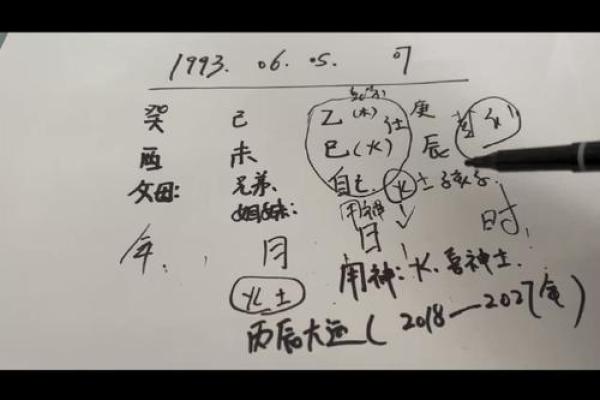 1993. 06. 05. 07
癸 己 乙(木) 庚
酉 未 巳(火) 辰
父母: 兄弟、 自己. 火土 孩子.
姐妹: 用神
年. 月 日 时,
用神: 火. 喜神土.
火土
丙辰大运( 2018—2027年)